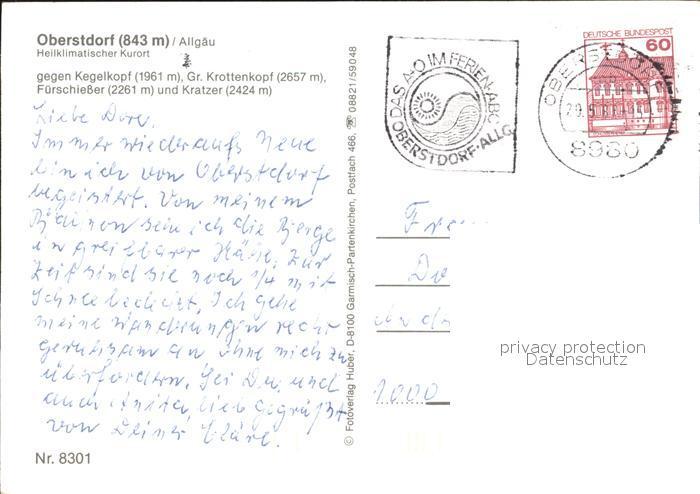 Oberstdorf (843 m) / Allgäu
Heilklimatischer Kurort
gegen Kegelkopf (1961 m), Gr. Krottenkopf (2657 m),
Fürschießer (2261 m) und Kratzer (2424 m)
Liebe Dore,
Immer wieder aufs Neue
bin ich von Oberstdorf
begeistert. Von meinem
sehe ich die Berge
in greifbarer Nähe. Zur
Zeit sind sie noch 1/4 mit
Schnee bedeckt. Ich gehe
meine Wanderungen recht
geruhsam an ohne mich zu
überfordern. Sei Du und
auch Anita lieb gegrüßt
von Deiner Cläre.
Nr. 8301
© Fotoverlag Huber, D-8100 Garmisch-Partenkirchen, Postfach 466, ☏ 08821/59048
DAS A-O IM FERIEN-ABC
OBERSTDORF·ALLG.
OBERSTDORF
8980
DEUTSCHE BUNDESPOST
60
1000
privacy protection
Datenschutz